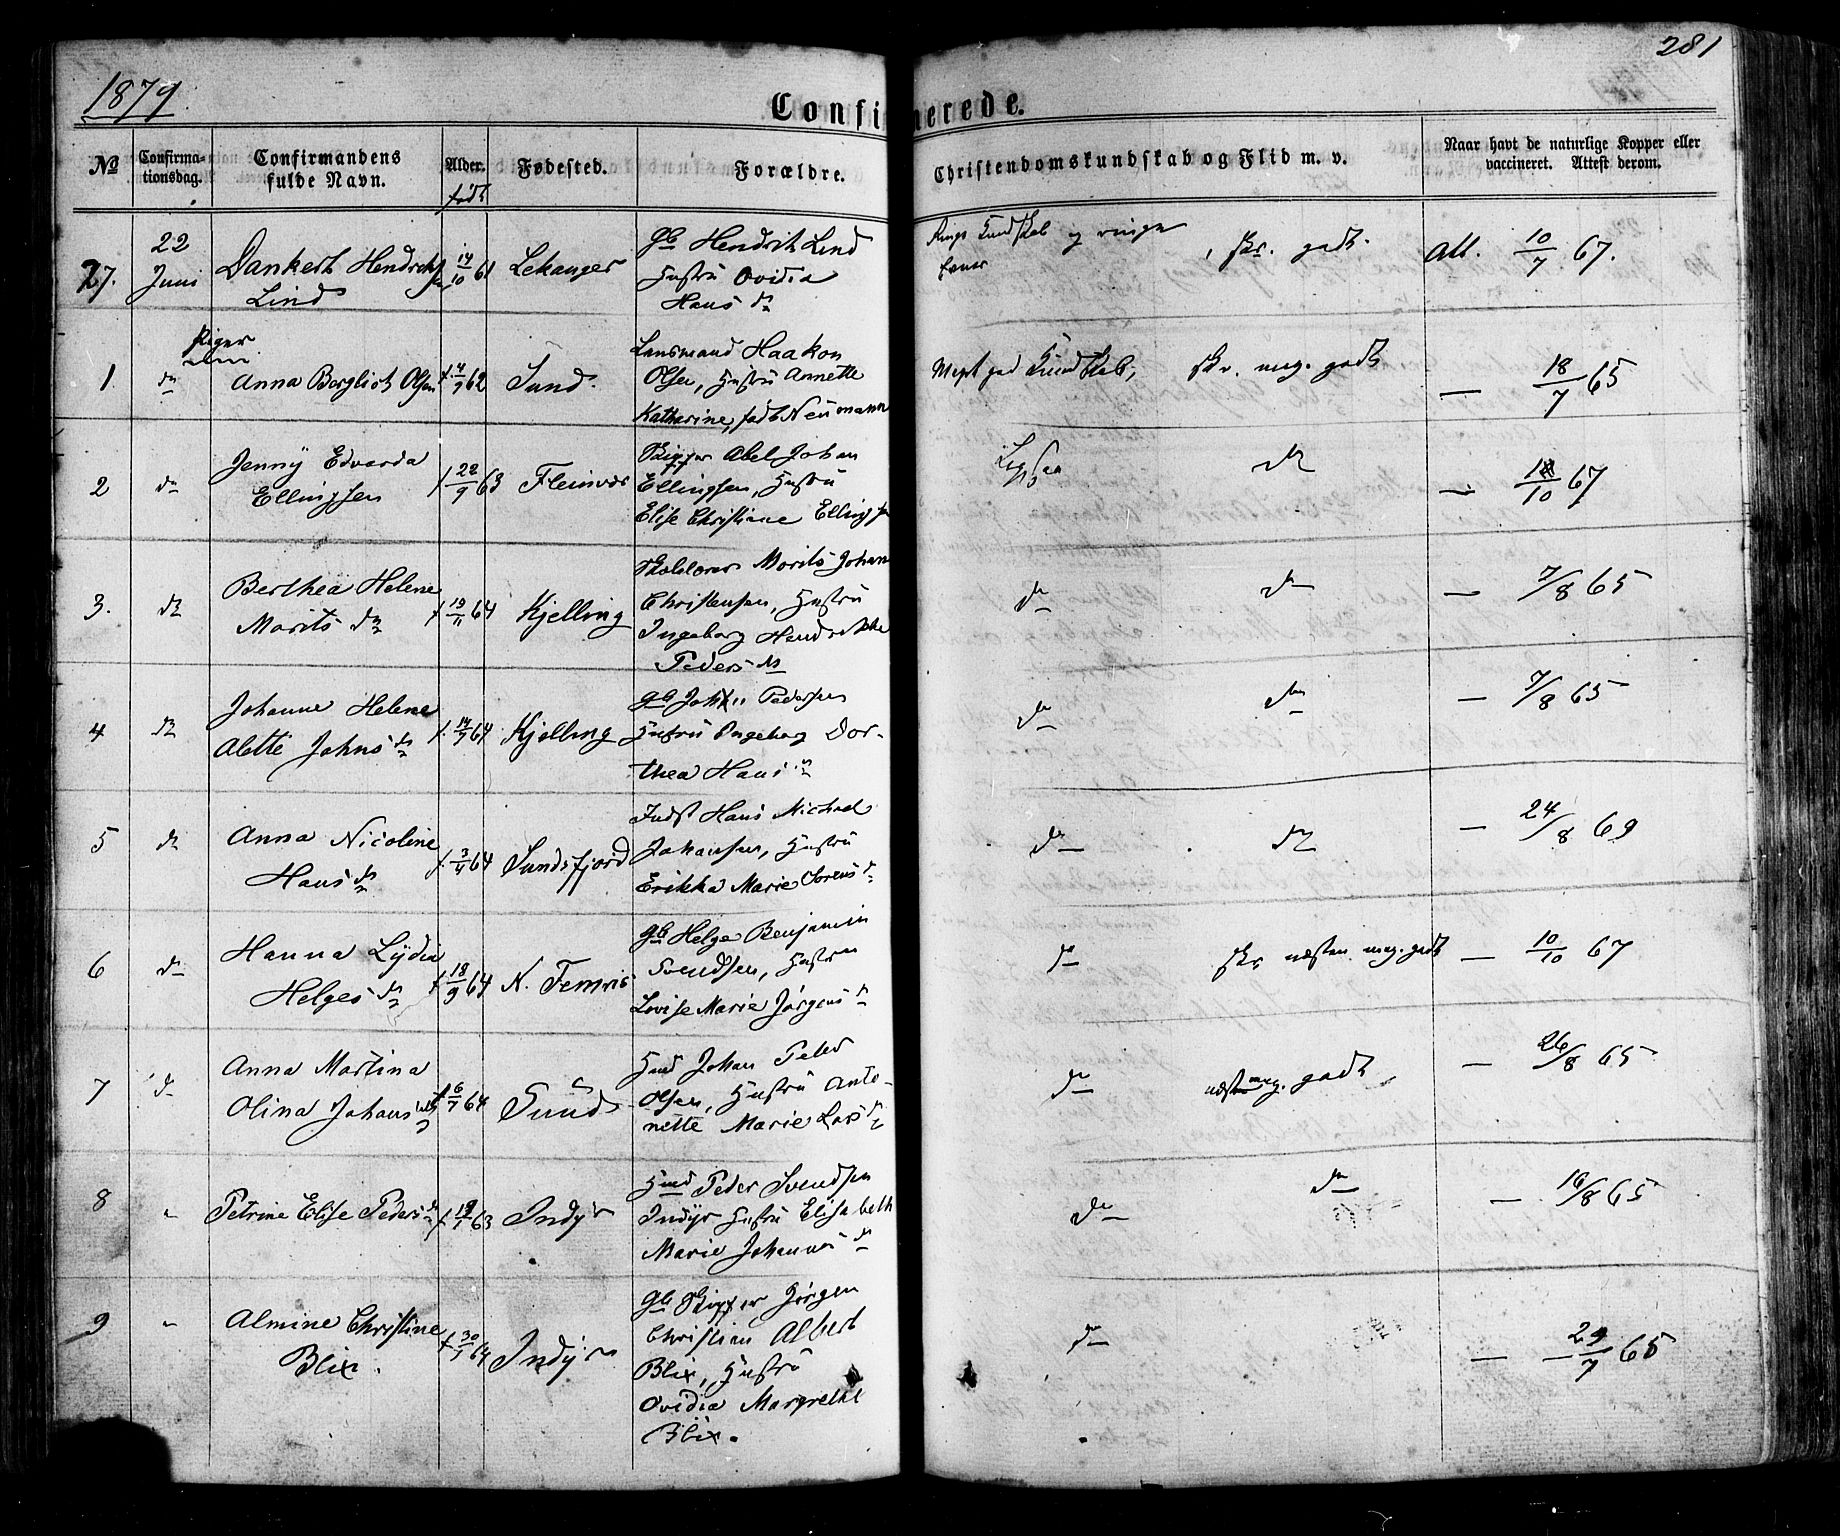 1879.
281
Confirmerede.
No
Confirmationsdag.
Confirmandens fulde Navn.
Alder.
født
Fødested.
Forældre.
Christendomskundskab og Flid m. v.
Naar havt de naturlige Kopper eller vaccineret. Attest derom.
27.
22 Juni
Dankert Hendriks
Lind
14/10 61
Lekanger
Gb Hendrik Lind
Hustru Ovidia
Hans d
Ringe Kundskab og ringe
Evner
, skr. godt.
Att. 10/7 67.
Piger
1.
do
Anna Bergliot Olsen
f. 4/9 62
Sund.
Lensmand Haakon
Olsen, Hustru Annette
Katharine, født Neumann
Meget god Kundskab,
skr. meg. godt
— 18/7 65
2
do
Jenny Edvarda
Ellingsen
f 22/9 63
Fleinvær
Skipper Abel Johan
Ellingsen, Hustru
Elise Christine Ellingsen
Ligesaa
do
— /10 67
3.
do
Berthea Helene
Morits d
f 19/11 64
Kjelling
Morits Johan
Christensen, Hustru
Ingeborg Hendrikke
Peders d
do
do
— 7/8 65
4
do
Johanne Helene
Alette Johns d
f. 14/9 64
Kjelling
Gb John Pedersen
Hustru Ingeborg Dor-
thea Hans d
do
do
— 7/8 65
5
do
Anna Nicoline
Hans d
f. 3/4 64
Sundsfjord
Indst Hans Michael
Johansen, Hustru
Erikka Marie Sørens d
do
do
— 24/8 69
6
do
Hanna Lydia
Helges d
f 18/9 64
N. Femris
Gb Helge Benjamin
Svendsen, Hustru
Lovise Marie Jørgens d
do
skr næsten meg. godt
— 10/10 67
7
do
Anna Martina
Olina Johans d
f 6/7 64
Sund
Hmd Johan Peter
Olsen, Hustru Anto-
nette Marie Lars d
do
næsten meg. godt
— 26/8 65
8
"
Petrine Elise Peders d
63
Indyr
Hmd Peder Svendsen
Indyr Hustru Elisabeth
Marie Johannes d
do
do
— 16/8 65
9
"
Almine Christine
Blix.
f 30/7 64
Indyr
Gb Skipper Jørgen
Christian Albert
Blix, Hustru
Ovidia Margrethe
Blix.
do
— 29/7 65